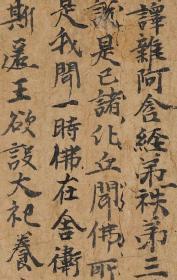 譯雜阿含経弟袟弟三
說是已諸比丘聞佛所
是我聞一時佛在舍衛
斯匿王欲設大祀養